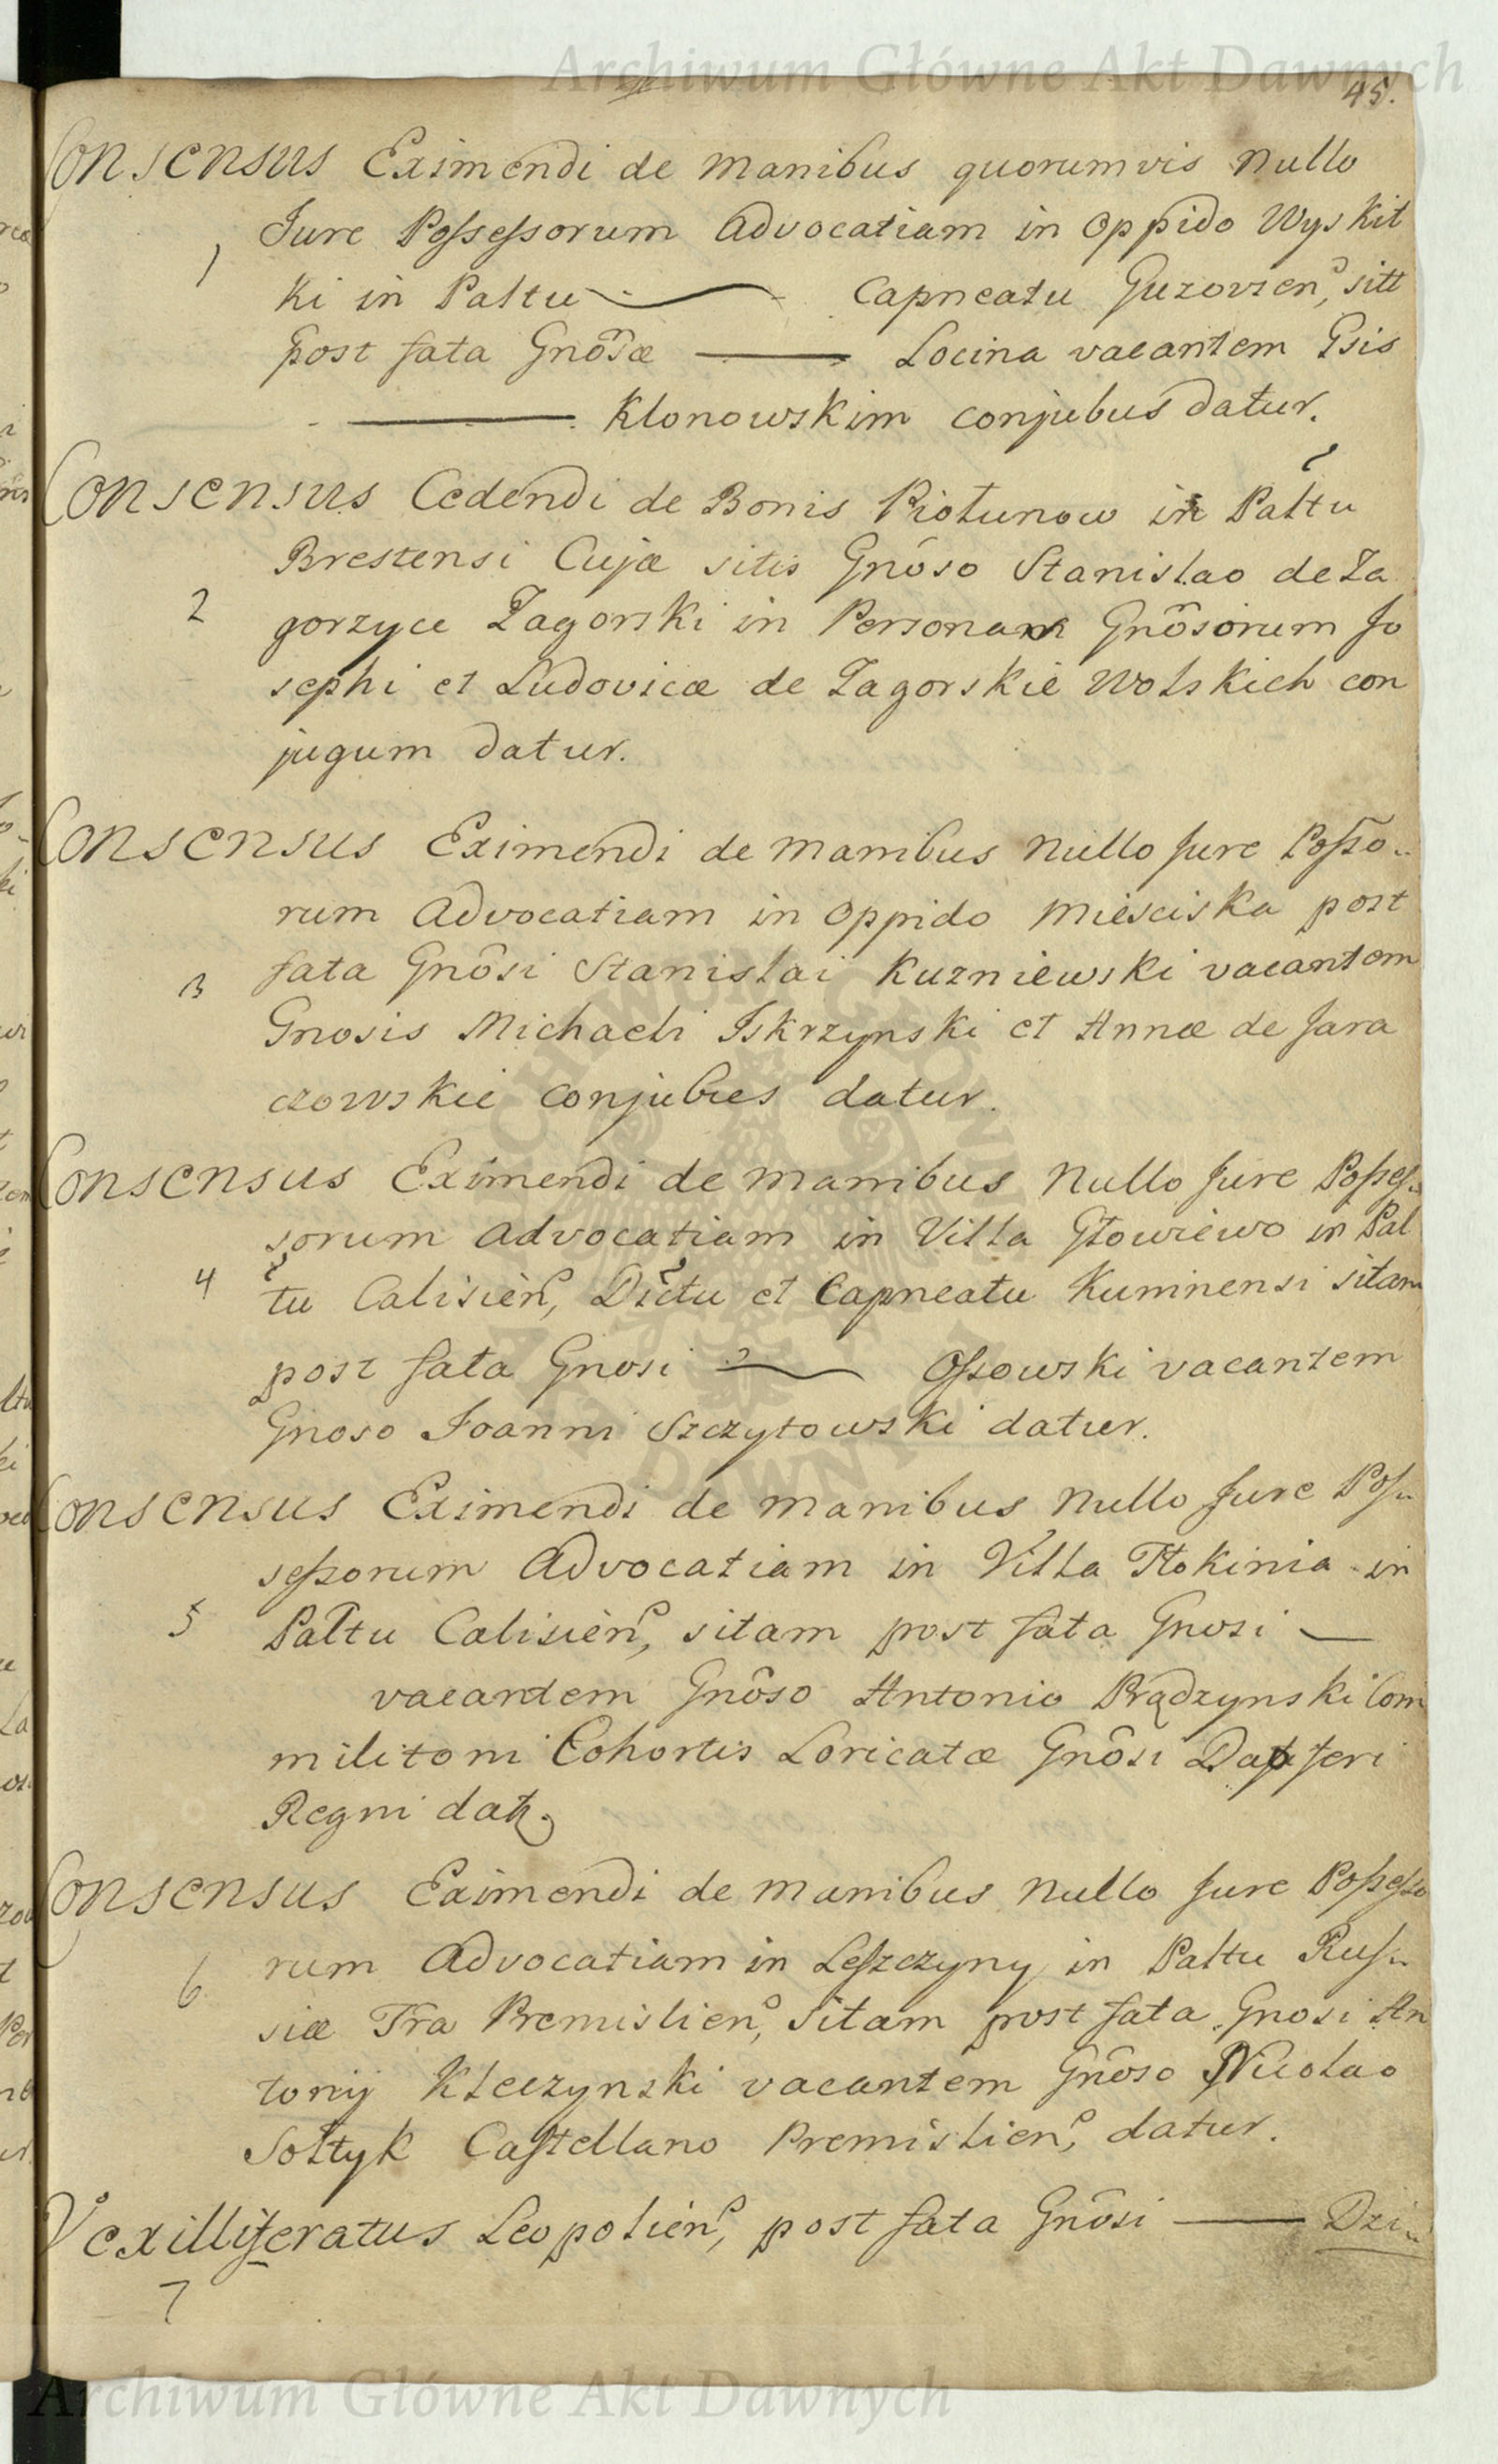 Archiwum Główne Akt Dawnych
45.
Consensus Eximendi de manibus quorumvis nullo
Jure Possessorum Advocatiam in Oppido Wyskit
1
ki in Paltu — Capneatu Guzovien, sitt
post fata Gnosæ — Locina vacantem Gsis
— Klonowskim conjubus datur.
Consensus Cedendi de Bonis Piotunow in Paltu
Brestensi Cujæ sitis Gnôso Stanislao de Za
2
gorzyce Zagorski in Personam Gnôsorum Jo
sephi et Ludovicæ de Zagorskie Wolskich con
jugum datur.
Consensus Eximendi de manibus nullo Jure Posso-
rum Advocatiam in Oppido Miesciska post
3
fata Gnôsi Stanislai Kuzniewski vacantem
Gnosis Michaeli Iskrzynski et Annæ de Jara
czowskie conjubus datur.
Consensus Eximendi de manibus Nullo Jure Posses-
sorum Advocatiam in Villa Głowiewo in Pal
4
tu Calisien, Dictu et Capneatu Kuminensi sitam
post fata Gnosi — Ossowski vacantem
Gnoso Joanni Szczytowski datur.
Consensus Eximendi de manibus Nullo Jure Pos-
sessorum Advocatiam in Villa Tłokinia in
5
Paltu Calisien, sitam post fata Gnosi —
vacantem Gnôso Antonio Prądzynski Com
militoni Cohortis Loricatæ Gnôsi Dapiferi
Regni datr.
Consensus Eximendi de manibus nullo Jure Possesso
rum Advocatiam in Leszczyny in Paltu Rus-
6
siæ Tra Premislien, sitam post fata Gnosi An
tonij Kleczynski vacantem Gnôso Nicolao
Sołtyk Castellano Premislien, datur.
Vexilliferatus Leopolien, post fata Gnôsi — Dzi-
7
Archiwum Główne Akt Dawnych